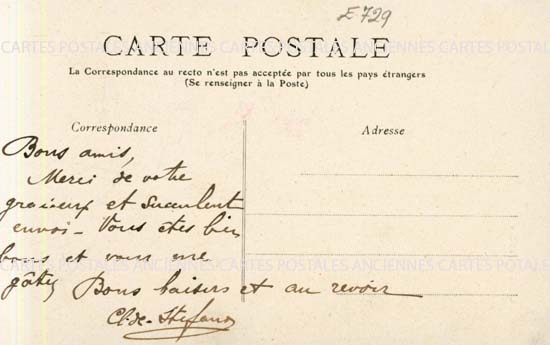 E 729
CARTES POSTALES ANCIENNES CARTES POSTALES
CARTE POSTALE
La Correspondance au recto n'est pas acceptée par tous les pays étrangers
(Se renseigner à la Poste)
Correspondance
Adresse
Bons amis,
Merci de votre
gracieux et succulent
envoi - Vous êtes bien
bons et vous me
gâtez Bons baisers et au revoir
Cl. de Stefano
CARTES POSTALES ANCIENNES CARTES POSTALES